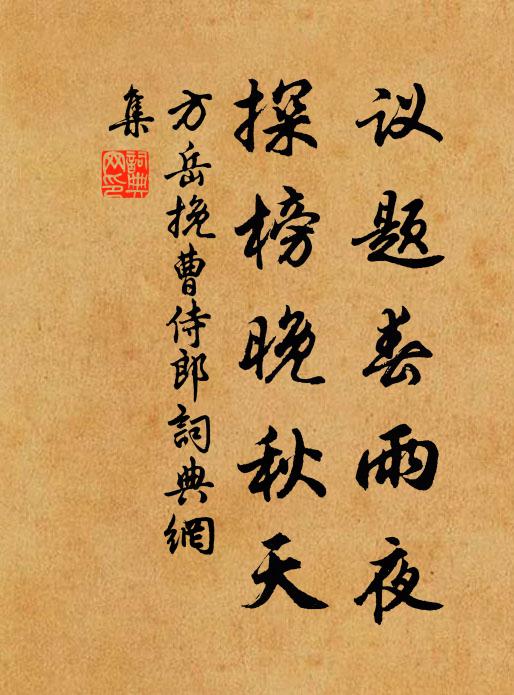 议题春雨夜
探榜晚秋天
方岳挽曹侍郎詞典網
集
詞典网印